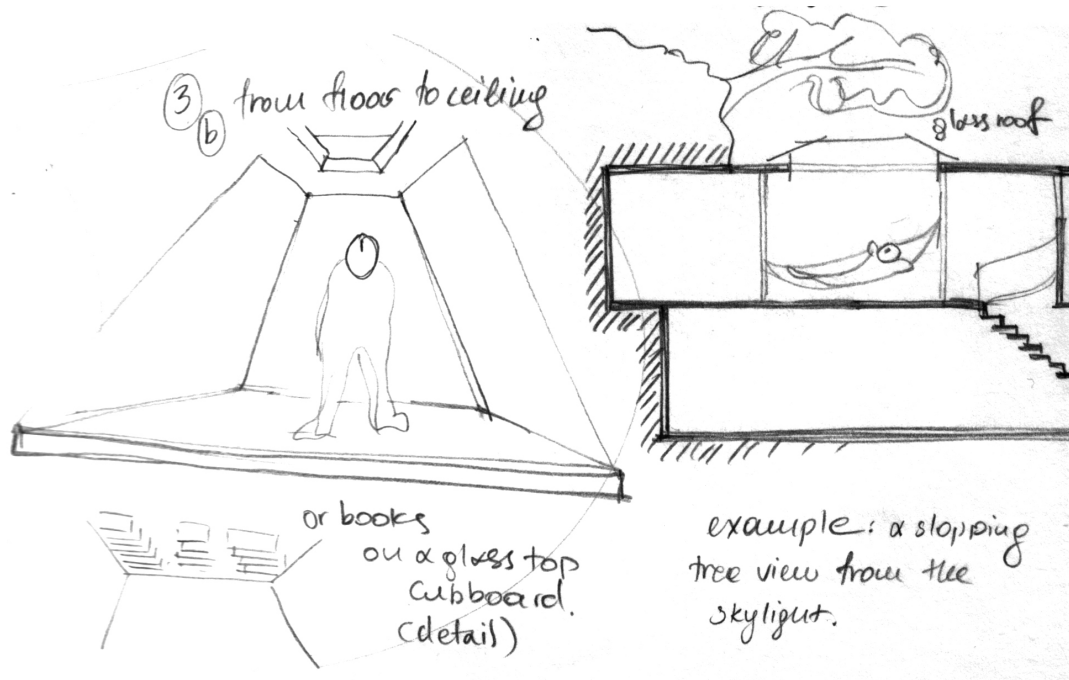 3 from floor to ceiling
b
glass roof
or books
on a glass top
cubboard.
(detail)
example: a slopping
tree view from the
skylight.